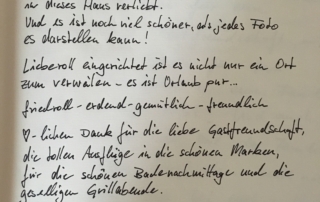 in dieses Haus verliebt.
Und es ist noch viel schöner, als jedes Foto
es darstellen kann!
Liebevoll eingerichtet ist es nicht nur ein Ort
zum verweilen – es ist Urlaub pur...
friedvoll – erdend – gemütlich – freundlich
♡-lichen Dank für die liebe Gastfreundschaft,
die tollen Ausflüge in die schönen Marken,
für die schönen Badenachmittage und die
geselligen Grillabende.